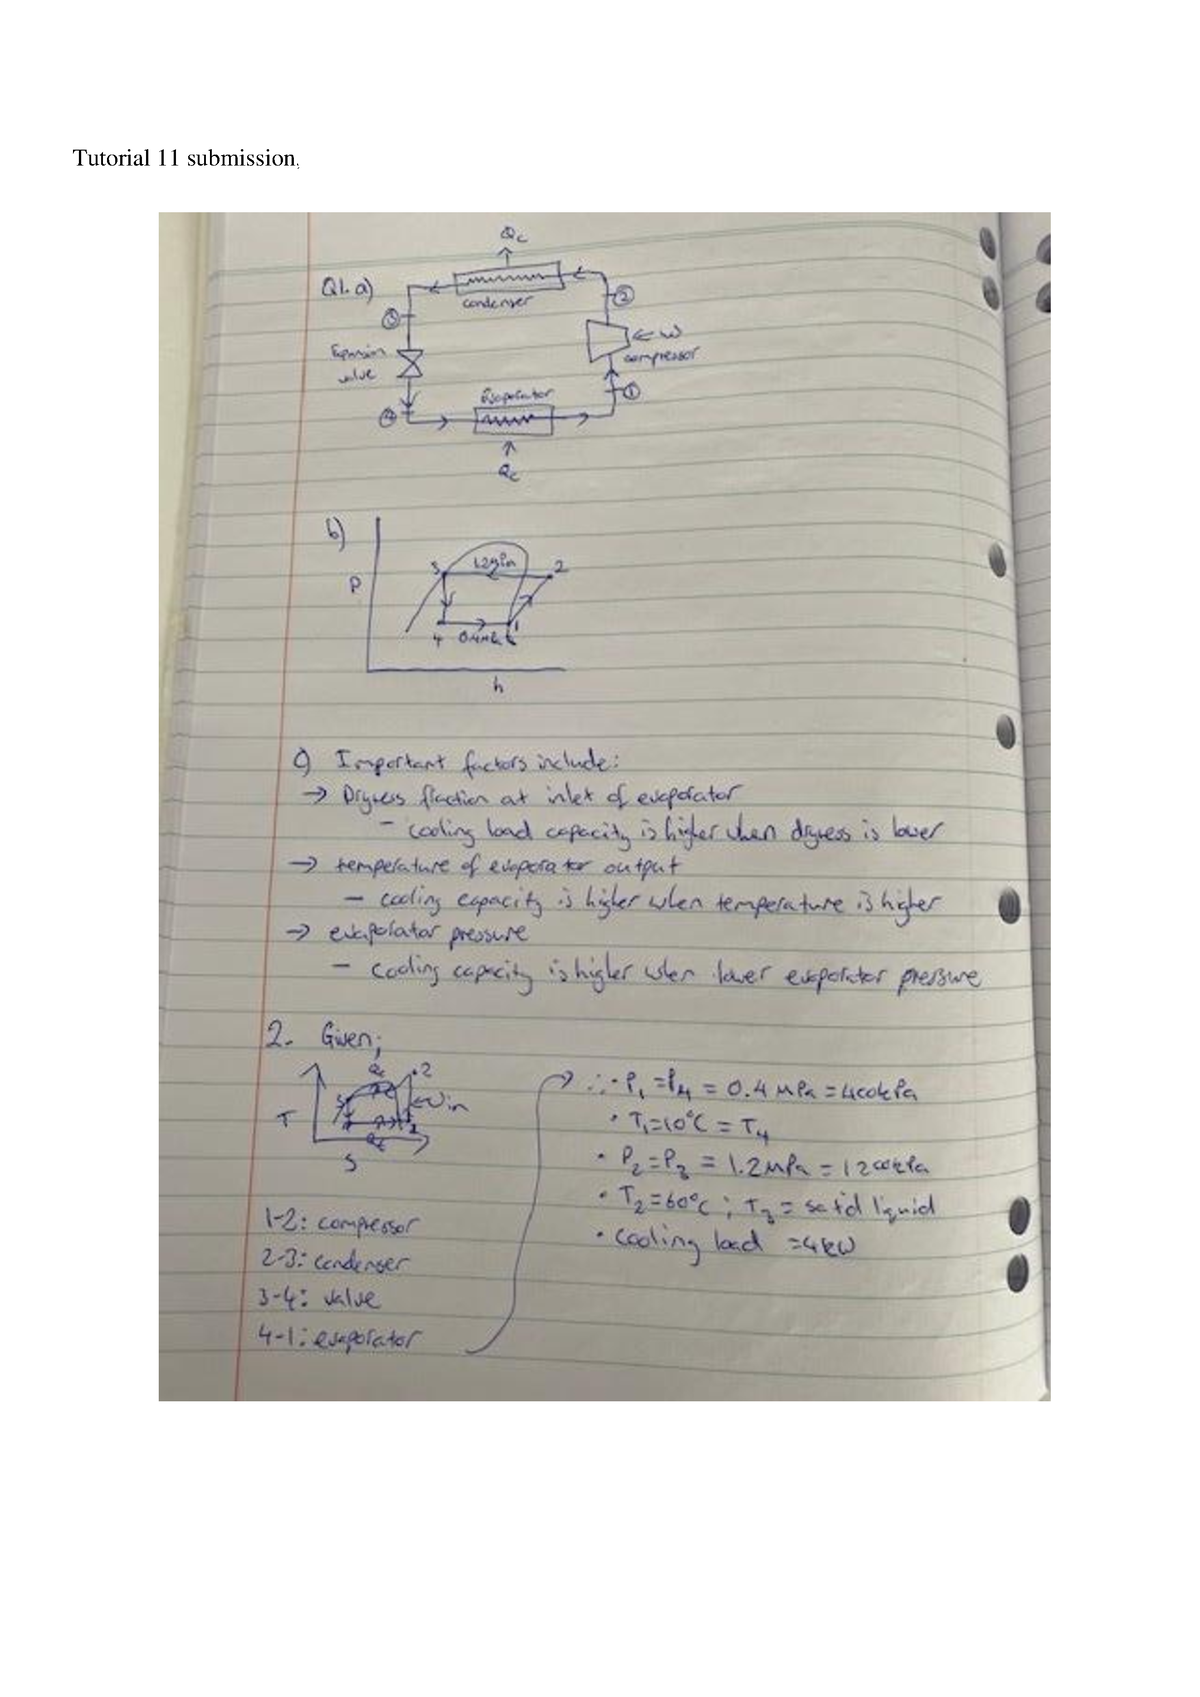 Tutorial 11 submission;
Qc
Q1. a)
condenser
②
③
← W
compressor
Expansion
valve
Evaporator
①
④
Qc
b)
P
3
1.2MPa
2
4
0.4MPa
1
h
c) Important factors include:
→ Dryness fraction at inlet of evaporator
- cooling load capacity is higher when dryness is lower
→ temperature of evaporator output
- cooling capacity is higher when temperature is higher
→ evaporator pressure
- cooling capacity is higher when lower evaporator pressure
2. Given;
T
S
2
Win
1-2: compressor
2-3: condenser
3-4: valve
4-1: evaporator
∴ · P1 = P4 = 0.4 MPa = 400kPa
· T1=10°C = T4
· P2 = P3 = 1.2MPa = 1200kPa
· T2 = 60°C ; T3 = sat'd liquid
· cooling load = 4kW